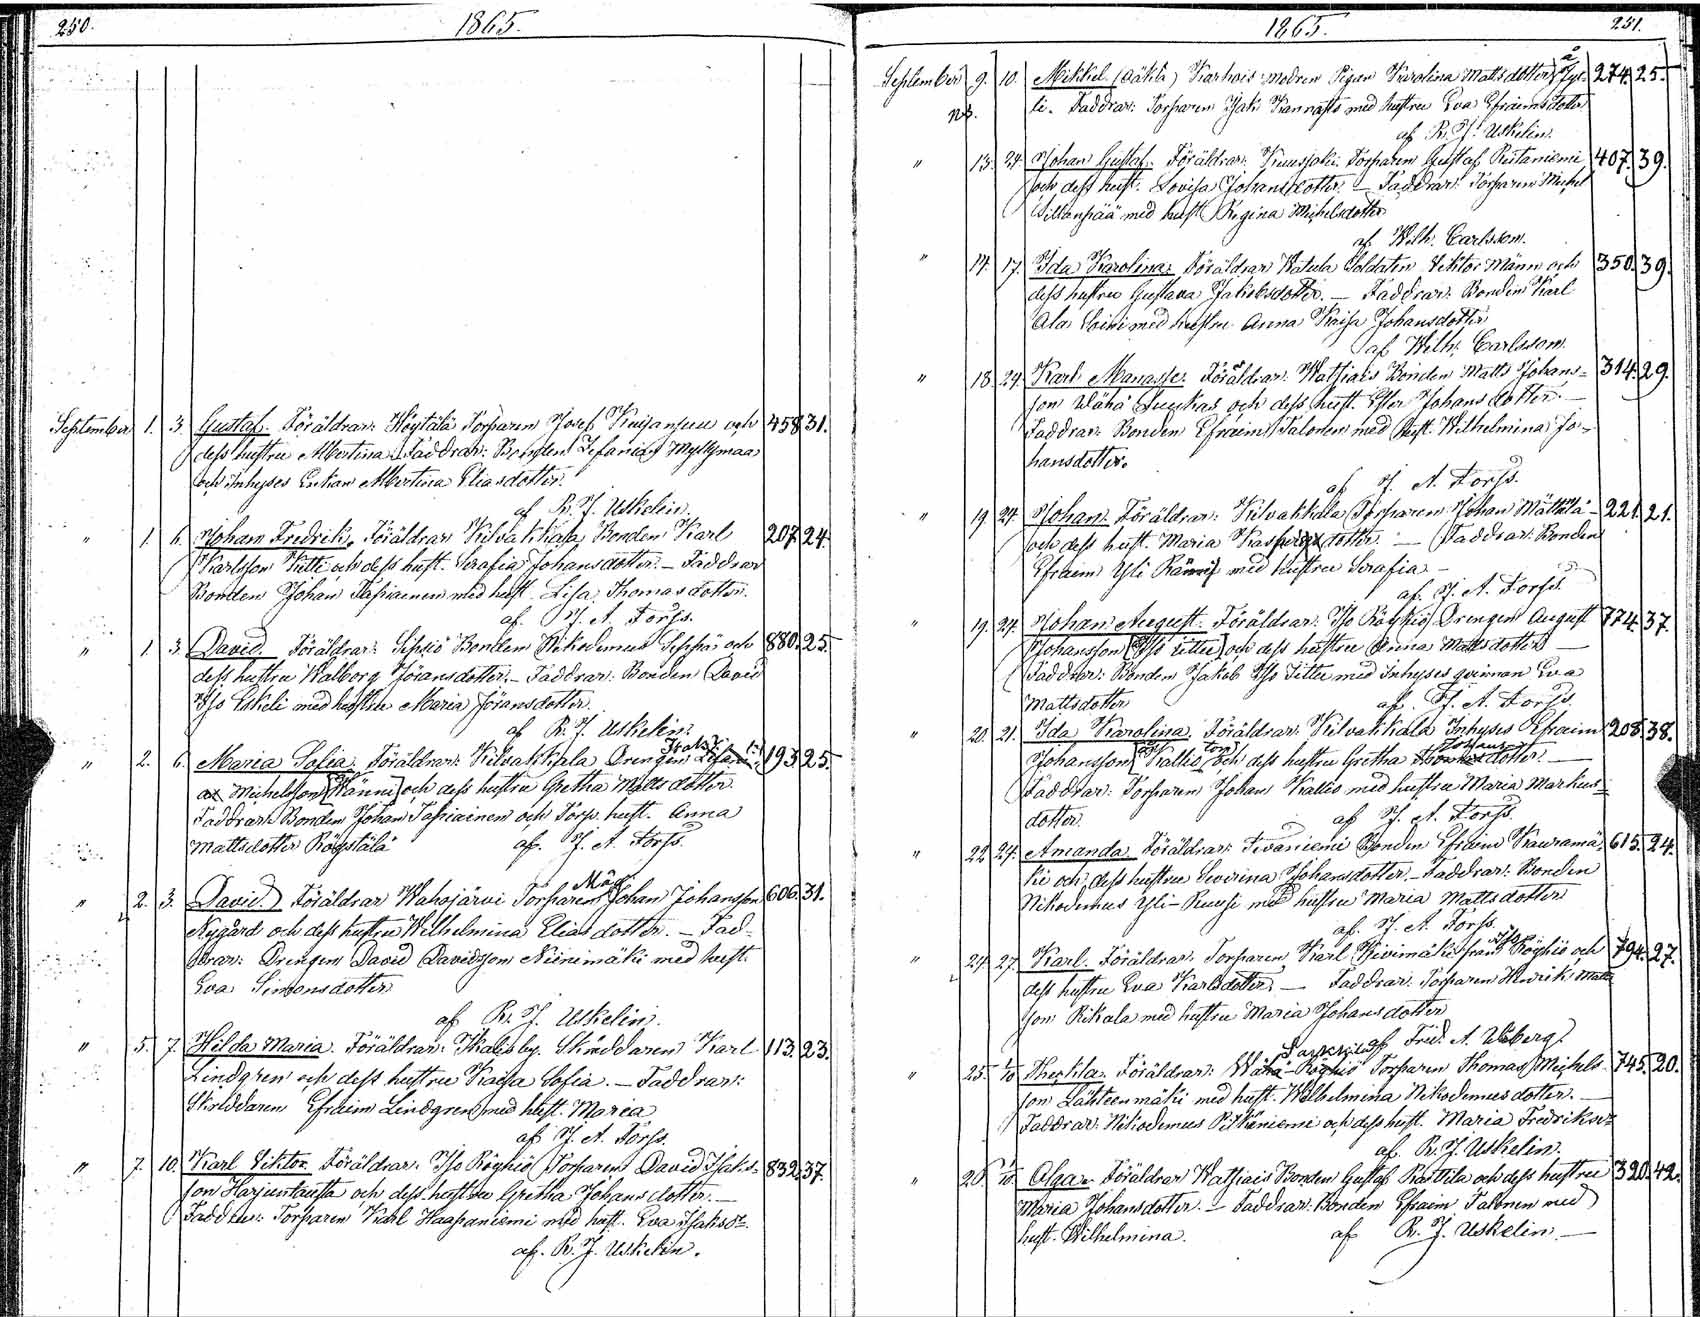 250.
1865.
September 1. 3. Gustaf. Föräldrar: Höytälä Torparen Josef Kuijansuu och 458 31.
dess hustru Albertina. Faddrar: Bonden Zefanias Myllymaa
och Inhyses Enkan Albertina Eliasdotter.
af R. J. Uskelin.
" 1 6. Johan Fredrik. Föräldrar Kilvakkala Bonden Karl 207. 24.
Karlsson Kitti och dess hust. Serafia Johansdotter. – Faddrar
Bonden Johan Tapiainen med hust. Lisa Thomasdotter.
af J. A. Forss.
" 1 3. David. Föräldrar: Sipsiö Bonden Nikodemus Seppä och 880. 25.
dess hustru Walborg Jöransdotter. – Faddrar: Bonden David
Iso Eskeli med hustru Maria Jöransdotter.
af R. J. Uskelin.
" 2. 6. Maria Sofia. Föräldrar: Kilvakkala Drengen 193 25.
Michelsson (Männi) och dess hustru Gretha Mattsdotter.
Faddrar: Bonden Johan Tapiainen och Torp. hust. Anna
Mattsdotter Röystälä af. J. A. Forss.
" 2. 3. David. Föräldrar Wahojärvi Torparen Johan Johansson 606. 31.
Nygård och dess hustru Wilhelmina Eliasdotter. – Fad-
drar: Drengen David Davidsson Niinimäki med hust.
Eva Simonsdotter
af R. J. Uskelin.
" 5. 7. Hilda Maria. Föräldrar: Ikalis by. Skräddaren Karl 113. 23.
Lindgren och dess hustru Kaisa Sofia. – Faddrar:
Skräddaren Efraim Lindgren med hust. Maria
af J. A. Forss.
" 7. 10. Karl Viktor. Föräldrar: Iso Röyhiö Torparen David Isaks- 832. 37.
son Harjuntausta och dess hustru Gretha Johansdotter. –
Faddrar: Torparen Karl Haapaniemi med hust. Eva Isaksdr.
af. R. J. Uskelin.
1865.
251.
September 9. 10. Mikkel. (oäkta) Karhois modren Pigan Karolina Mattsdotter å Jyl- 274. 25.
NB. li. Faddrar: Torparen Isak Kannasto med hustru Eva Efraimsdotter
af R. J. Uskelin.
" 13. 24. Johan Gustaf. Föräldrar: Kuusjoki Torparen Gustaf Ristaniemi 407. 39.
och dess hust. Lovisa Johansdotter. – Faddrar: Torparen Michel
Sillanpää med hust. Regina Michelsdotter
af Wilh. Carlsson.
" 14. 17. Ida Karolina: Föräldrar Watula Soldaten Viktor Männ och 350. 39.
dess hustru Gustava Jakobsdotter. – Faddrar: Bonden Karl
Ala Soini med hustru Anna Kaisa Johansdotter
af Wilh. Carlsson.
" 18. 24. Karl Manasse. Föräldrar: Watsiais Bonden Matts Johans- 314. 29.
son Wähä Luukas och dess hust. Ester Johansdotter. –
Faddrar: Bonden Efraim Talonen med hust. Wilhelmina Jo-
hansdotter.
af J. A. Forss.
" 19. 24. Johan. Föräldrar: Kilvakkala Torparen Johan Mättälä 221. 21.
och dess hust. Maria Kaspersdotter. – Faddrar: Bonden
Efraim Yli Männis med hustru Serafia –
af. J. A. Forss.
" 19. 24. Johan August. Föräldrar: Iso Röyhiö Drengen August 774. 37.
Johansson (Iso Tittu) och dess hustru Anna Mattsdotter –
Faddrar: Bonden Jakob Iso Tittu med Inhyses qvinnan Eva
Mattsdotter af J. A. Forss.
" 20. 21. Ida Karolina. Föräldrar: Kilvakkala Inhyses Efraim 208. 38.
Johansson Kallio och dess hustru Gretha dotter. –
Faddrar: Torparen Johan Kallio med hustru Maria Markus-
dotter. af J. A. Forss.
" 22. 24. Amanda. Föräldrar: Tevaniemi Bonden Efraim Kauramä- 615. 24.
ki och dess hustru Severina Johansdotter. – Faddrar: Bonden
Nikodemus Yli-Kuusi med hustru Maria Mattsdotter
af. J. A. Forss.
" 24. 27. Karl. Föräldrar: Torparen Karl Kivimäki från Iso Röyhiö och 794. 27.
dess hustru Eva Karlsdotter. – Faddrar: Torparen Henrik Matts-
son Rikala med hustru Maria Johansdotter
af Fred. A. Wiberg.
" 25. 1/10 Thekla. Föräldrar: Sarkkila Torparen Thomas Michels- 745. 20.
son Lähteenmäki med hust. Wilhelmina Nikodemusdotter. –
Faddrar: Nikodemus Pitkäniemi och dess hust. Maria Fredriksdr.
af. R. J. Uskelin.
" 28. 1/10 Olga. Föräldrar Watsiais Bonden Gustaf Rastila och dess hustru 320. 42.
Maria Johansdotter. – Faddrar: Bonden Efraim Talonen med
hust. Wilhelmina. af R. J. Uskelin. –